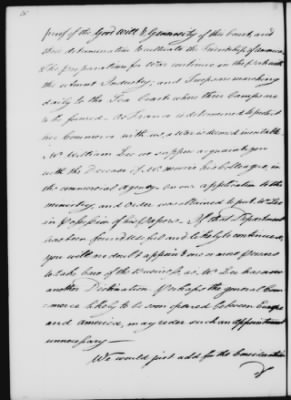 proof of the Good Will & Generosity of this Court, and
their determination to cultivate the Friendship of America
& The preparations for War continue in this port with
the utmost Industry, and Troops are marching
daily to the Sea Coast where three Camps are
to be formed. As France is determined to protect
her Commerce with us, a War is deemed inevitable.
Mr William Lee we suppose acquaints you
with the Decease of Mr Morris his Colleague in
the commercial agency. On our application to the
ministry, and Order was obtained to put Mr Lee
in Possession of his Papers. If that Department
has been found useful and likely to continue so,
you will no doubt appoint one or more Persons
to take Care of the Business, as Mr Lee has now
another Destination. Perhaps the general Com-
merce likely to be soon opened between Europe
and America, may render such an appointment
unnecessary —
We would just add for the Consideration